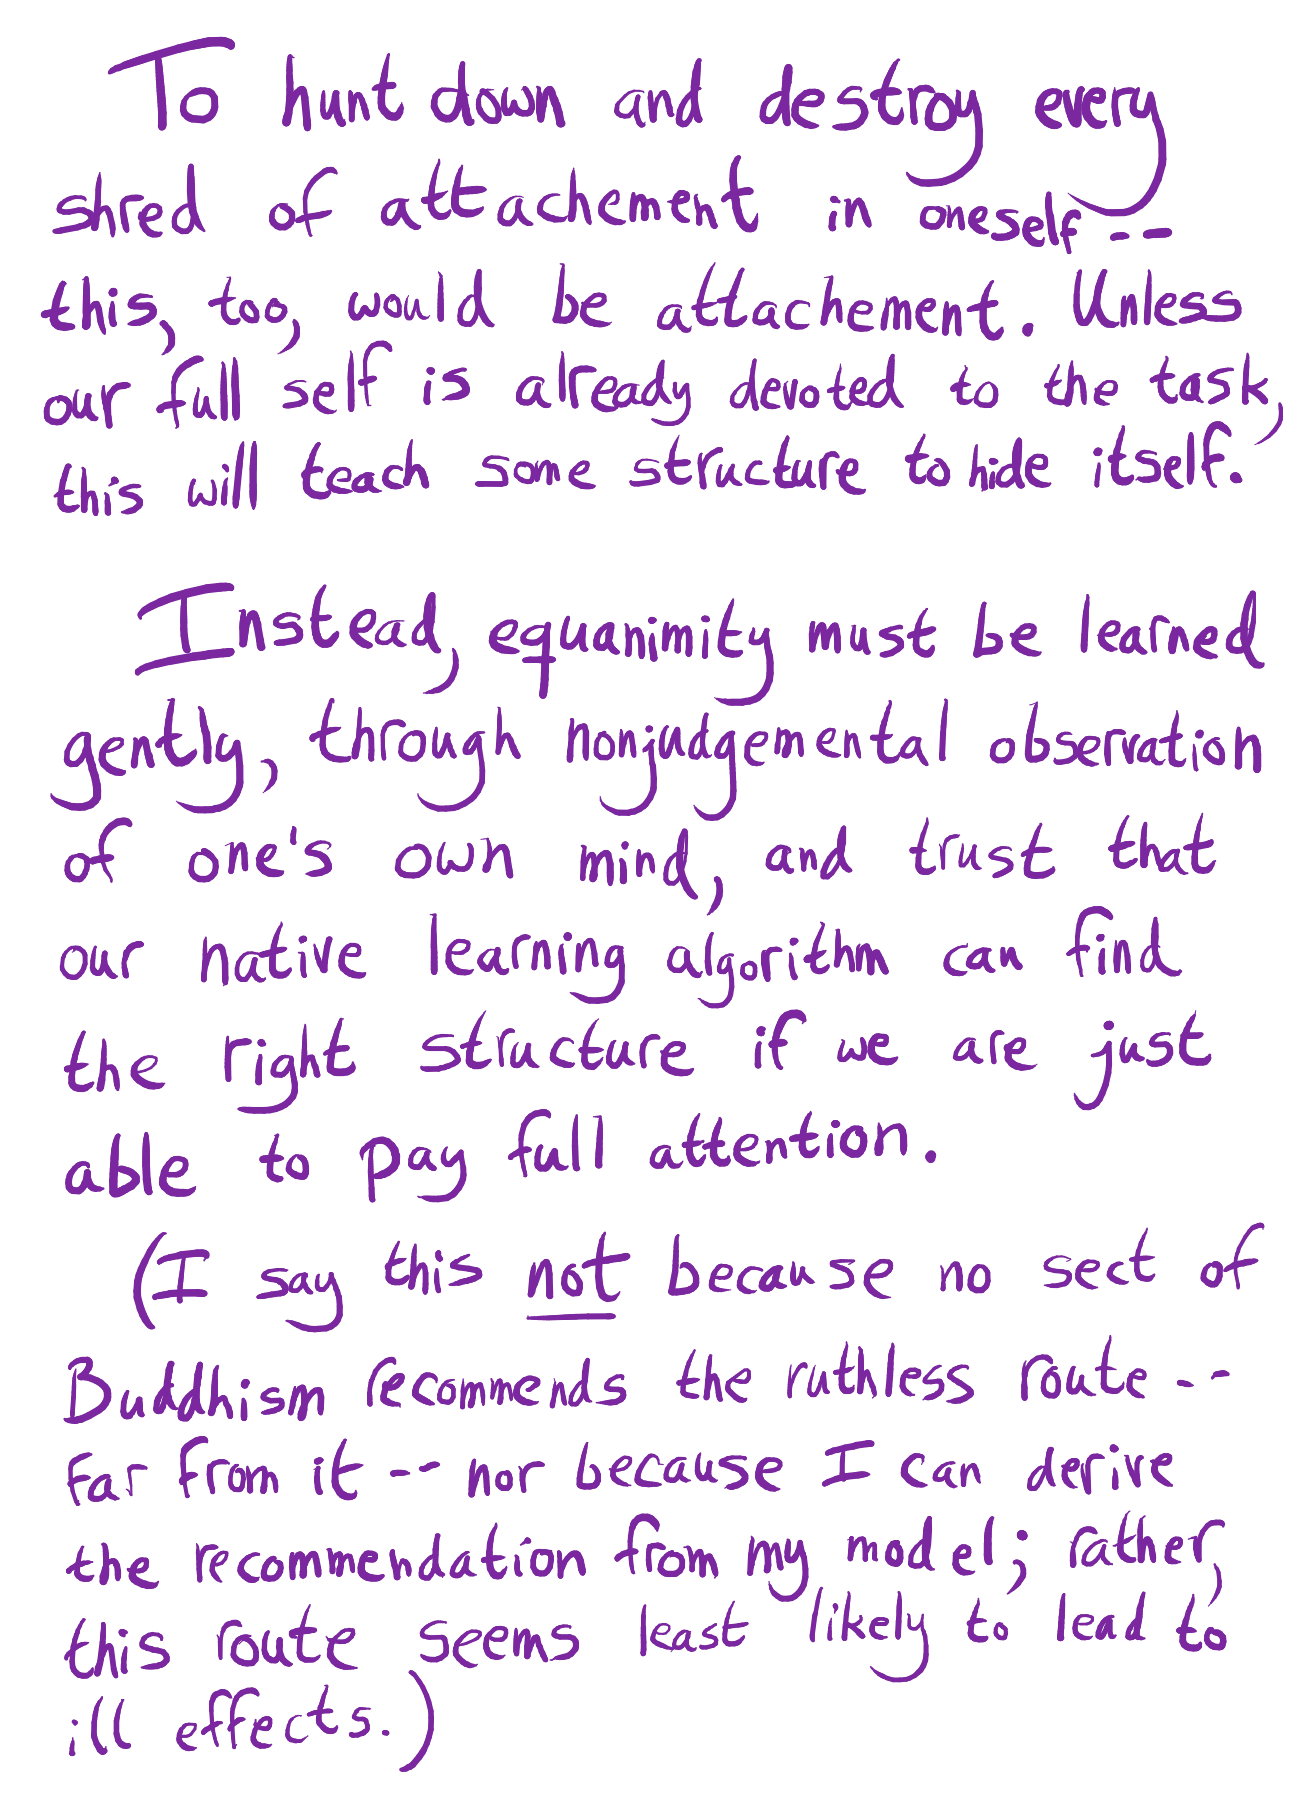 To hunt down and destroy every
shred of attachement in oneself--
this, too, would be attachement. Unless
our full self is already devoted to the task,
this will teach some structure to hide itself.
Instead, equanimity must be learned
gently, through nonjudgemental observation
of one's own mind, and trust that
our native learning algorithm can find
the right structure if we are just
able to pay full attention.
(I say this not because no sect of
Buddhism recommends the ruthless route--
far from it -- nor because I can derive
the recommendation from my model; rather,
this route seems least likely to lead to
ill effects.)